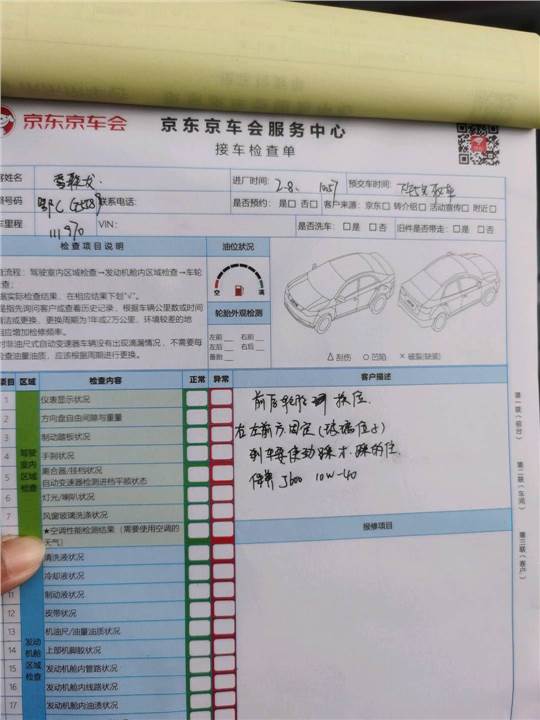 京东京车会 京东京车会服务中心
接车检查单
客姓名 进厂时间: 2-8. 1057 预交车时间:
牌号码 鄂C 联系电话: 是否预约: 是 否 客户来源: 京东 转介绍 活动宣传 附近
车里程 111970 VIN: 是否洗车: 是 否 旧件是否带走: 是 否
检查项目说明
流程: 驾驶室内区域检查→发动机舱内区域检查→车轮
检查;
据实际检查结果, 在相应结果下划"√"。
是指先询问客户或查看历史记录, 根据车辆公里数或时间
清洁或更换, 更换周期为1年或2万公里, 环境较差的地
相应增加检修频率。
对非油尺式自动变速器车辆没有出现滴漏情况, 不需要每
检查油量油质, 应该根据周期进行更换。
油位状况
空 满
轮胎外观检测
左前 右前
左后 右后
备胎
△ 刮伤 ○ 凹陷 × 破裂(缺损)
项目 区域 检查内容 正常 异常 客户描述
驾驶室内区域检查
1 仪表显示状况
2 方向盘自由间隙与重量
3 制动踏板状况
4 手刹状况
5 离合器/挂档状况
自动变速器检测进档平顺状态
6 灯光/喇叭状况
7 风窗玻璃洗涤状况
★空调性能检测结果 (需要使用空调的
天气)
发动机舱区域检查
清洗液状况
冷却液状况
11 制动液状况
12 皮带状况
13 机油尺/油量油质状况
14 上部机脚胶状况
15 发动机舱内管路状况
16 发动机舱内线路状况
17 发动机舱内油渍状况
前后轮胎 换位.
右左前方固定(玻璃位子)
刹车要使劲踩才 踩的住.
保养 J600 10W-40
报修项目
第一联(前台)
第二联(车间)
第三联(客户)